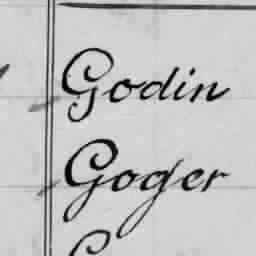 Godin
Goger